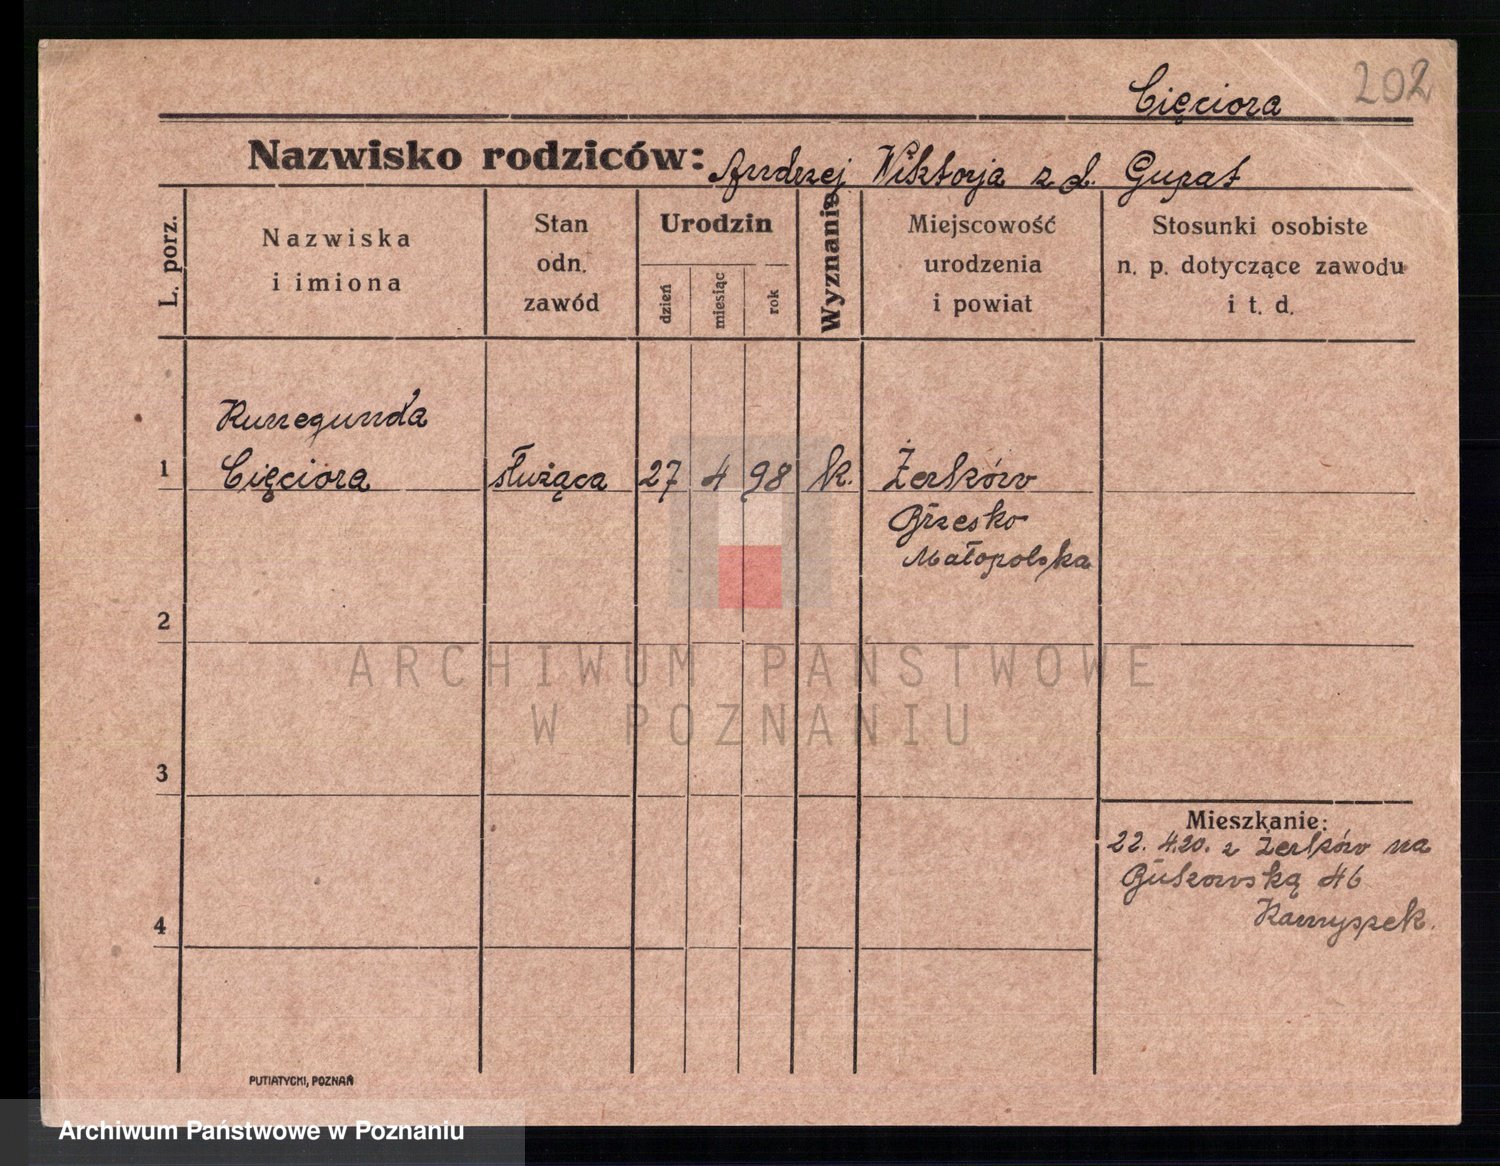 202
Cięciora
Nazwisko rodziców: Andrzej Wiktorja z d. Gurat
L. porz.
Nazwiska
i imiona
Stan
odn.
zawód
Urodzin
dzień
miesiąc
rok
Wyznanie
Miejscowość
urodzenia
i powiat
Stosunki osobiste
n. p. dotyczące zawodu
i t. d.
Kunegunda
1 Cięciora służąca 27 4 98 k. Żerków
Brzesko
Małopolska
2
ARCHIWUM PAŃSTWOWE
W POZNANIU
3
Mieszkanie:
22. 4.20. z Żerków na
Bukowską 46
4
PUTIATYCKI, POZNAŃ
Archiwum Państwowe w Poznaniu